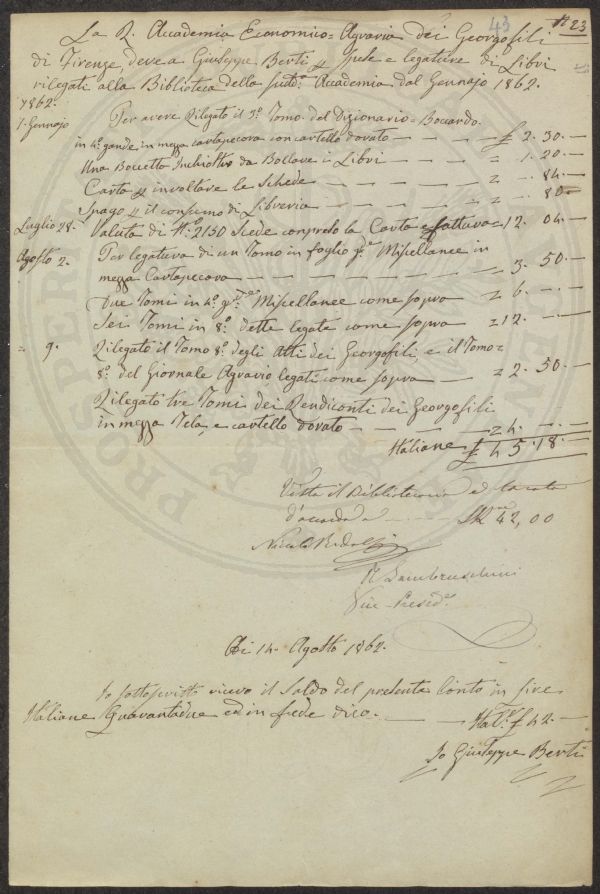 43 N 23
La R. Accademia Economico=Agraria dei Georgofili
di Firenze, deve a Giuseppe Berti p spese e legature di Libri
rilegati alla Biblioteca della sudd.a Accademia dal Gennajo 1862.
1862.
1. Gennajo Per avere Rilegato il 3.o Tomo del Dizionario=Boccardo.
in 4.o grande in mezza cartapecora con cartello dorato — £ 2. 30. —
Una Boccetta Inchiostro da Bollare i Libri — " 1. 20 —
Carta p involtare le Schede — " ". 84. —
Spago p il consumo di Libreria — " ". 80 —
Luglio 28. Valuta di N.o 2150 Scede compreso la Carta e fattura = 12. 04. —
Agosto 2. Per legatura di un Tomo in foglio g.de Miscellanee in
mezza Cartapecora — = 3. 50. —
Due Tomi in 4.o g.de Miscellanee come sopra = 6. — —
Sei Tomi in 8.o dette legate come sopra = 12. — —
= 9. Rilegato il Tomo 8.o degli Atti dei Georgofili, e il Tomo=
8.o del Giornale Agrario legati come sopra — = 2. 50. —
Rilegato tre Tomi dei Rendiconti dei Georgofili
in mezza Tela, e cartello dorato — = 4. — —
Italiane £ 45. 18. —
Visto il Bibliotecario ed
d'accordo a — 42,00
Nicolò Ridolfi
R Lambruschini
Vice-Presid.e
Di 14. Agosto 1862.
Io sottoscritto ricevo il Saldo del presente Conto in Lire
Italiane Quarantadue ed in fede dico. — Ital.e £ 42. —
Io Giuseppe Berti
PROSPERITATI